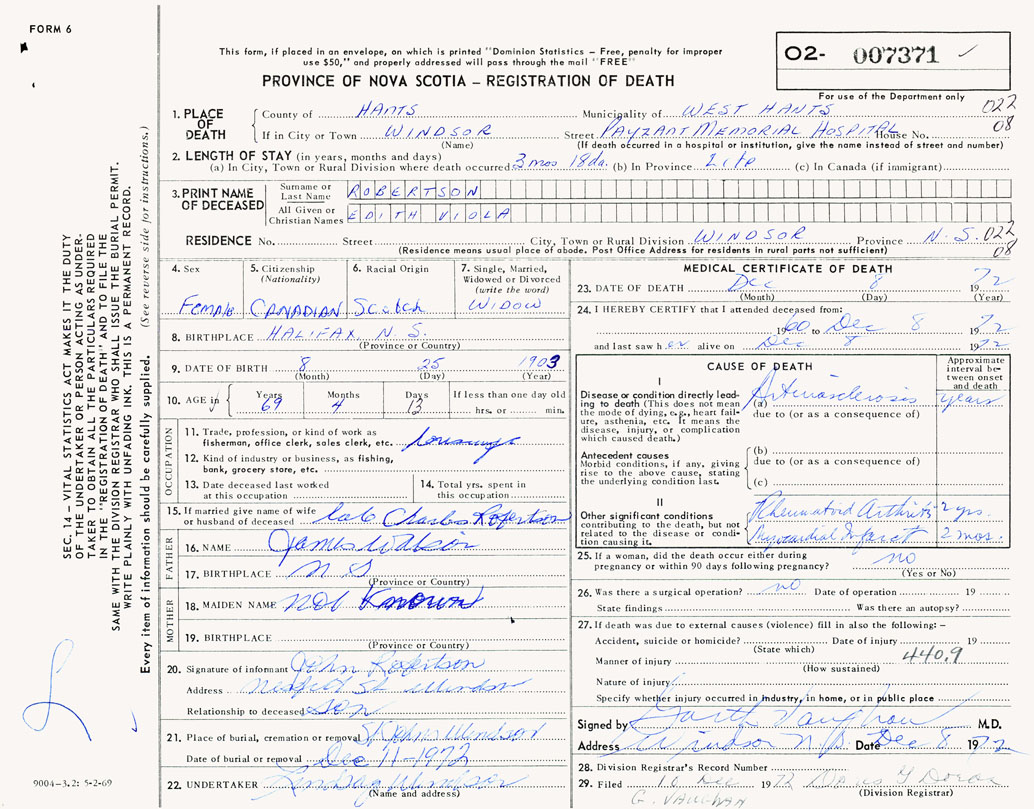 FORM 6
This form, if placed in an envelope, on which is printed "Dominion Statistics – Free, penalty for improper
use $50," and properly addressed will pass through the mail "FREE"
PROVINCE OF NOVA SCOTIA – REGISTRATION OF DEATH
02- 007371 ✓
For use of the Department only
1. PLACE OF DEATH
County of HANTS Municipality of WEST HANTS 022
If in City or Town WINDSOR Street PAYZANT MEMORIAL HOSPITAL House No. 08
(Name) (If death occurred in a hospital or institution, give the name instead of street and number)
2. LENGTH OF STAY (in years, months and days)
(a) In City, Town or Rural Division where death occurred 3 mos 18 da. (b) In Province Life (c) In Canada (if immigrant)
3. PRINT NAME OF DECEASED
Surname or Last Name ROBERTSON
All Given or Christian Names EDITH VIOLA
RESIDENCE No. Street City, Town or Rural Division WINDSOR Province N.S. 022
(Residence means usual place of abode. Post Office Address for residents in rural parts not sufficient) 08
4. Sex
Female
5. Citizenship
(Nationality)
CANADIAN
6. Racial Origin
Scotch
7. Single, Married,
Widowed or Divorced
(write the word)
WIDOW
8. BIRTHPLACE HALIFAX, N.S.
(Province or Country)
9. DATE OF BIRTH 8 25 1903
(Month) (Day) (Year)
10. AGE in
Years Months Days If less than one day old
69 4 13 hrs. or min.
OCCUPATION
11. Trade, profession, or kind of work as
fisherman, office clerk, sales clerk, etc.
12. Kind of industry or business, as fishing,
bank, grocery store, etc.
13. Date deceased last worked
at this occupation
14. Total yrs. spent in
this occupation
15. If married give name of wife
or husband of deceased late Charles Robertson
FATHER
16. NAME James Watson
17. BIRTHPLACE N S
(Province or Country)
MOTHER
18. MAIDEN NAME not Known
19. BIRTHPLACE
(Province or Country)
20. Signature of informant John Robertson
Address St. Windsor
Relationship to deceased Son
21. Place of burial, cremation or removal St Johns Windsor
Date of burial or removal Dec 11-1972
22. UNDERTAKER Lindsay Windsor
(Name and address)
MEDICAL CERTIFICATE OF DEATH
23. DATE OF DEATH Dec 8 1972
(Month) (Day) (Year)
24. I HEREBY CERTIFY that I attended deceased from:
1960 to Dec 8 1972
and last saw her alive on Dec 8 1972
CAUSE OF DEATH
Approximate interval between onset and death
I
Disease or condition directly leading to death (This does not mean
the mode of dying, e.g., heart failure, asthenia, etc. It means the
disease, injury, or complication
which caused death.)
(a) Arteriosclerosis years
due to (or as a consequence of)
Antecedent causes
Morbid conditions, if any, giving
rise to the above cause, stating
the underlying condition last.
(b)
due to (or as a consequence of)
(c)
II
Other significant conditions
contributing to the death, but not
related to the disease or condition causing it.
Rheumatoid Arthritis 2 yrs.
Myocardial Infarct 2 mos.
25. If a woman, did the death occur either during
pregnancy or within 90 days following pregnancy? no
(Yes or No)
26. Was there a surgical operation? no Date of operation 19
State findings Was there an autopsy?
27. If death was due to external causes (violence) fill in also the following: –
Accident, suicide or homicide? Date of injury 19
(State which)
Manner of injury 440.9
(How sustained)
Nature of injury
Specify whether injury occurred in industry, in home, or in public place
Signed by Garth Vaughan M.D.
Address Windsor N.S. Date Dec 8 1972
28. Division Registrar's Record Number
29. Filed 10 Dec 1972
(Division Registrar)
G. VAUGHAN
SEC. 14 – VITAL STATISTICS ACT MAKES IT THE DUTY
OF THE UNDERTAKER OR PERSON ACTING AS UNDER-
TAKER TO OBTAIN ALL THE PARTICULARS REQUIRED
IN THE "REGISTRATION OF DEATH" AND TO FILE THE
SAME WITH THE DIVISION REGISTRAR WHO SHALL ISSUE THE BURIAL PERMIT.
WRITE PLAINLY WITH UNFADING INK. THIS IS A PERMANENT RECORD.
Every item of information should be carefully supplied. (See reverse side for instructions.)
9004-3.2: 5-2-69